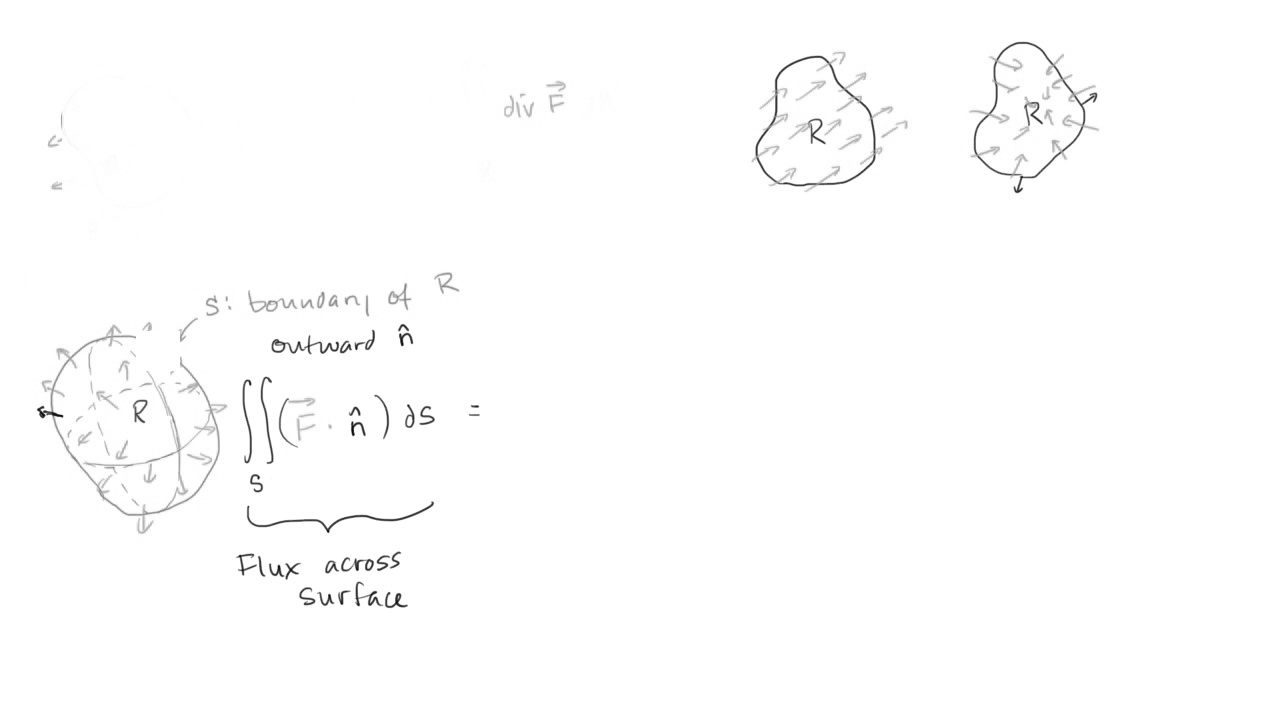 div F⃗
R
R
S: boundary of R
outward n̂
R
∬ (F⃗ · n̂) dS =
S
Flux across
surface